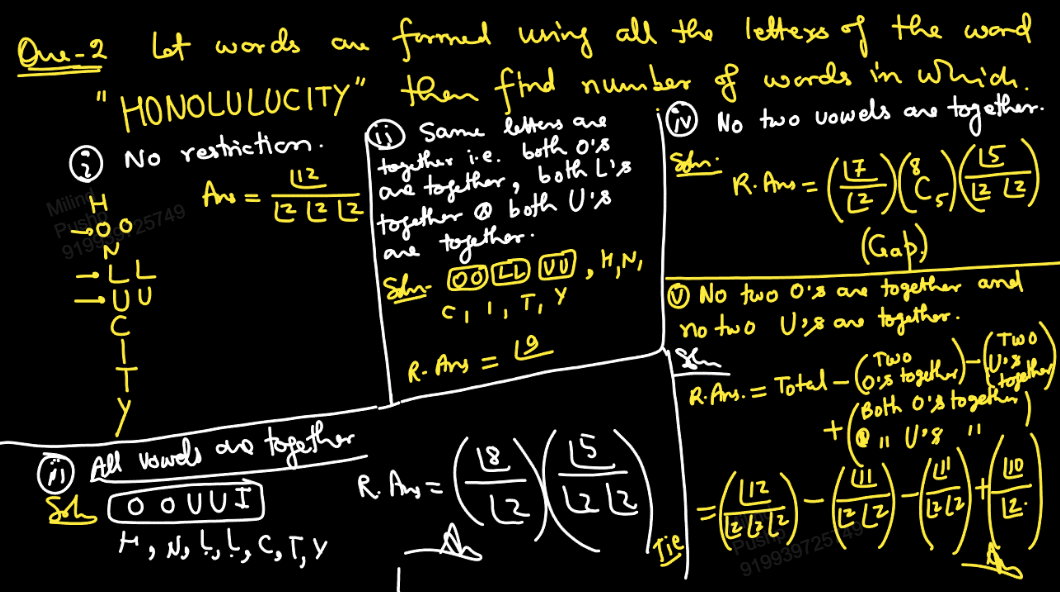 Que-2 Let words are formed using all the letters of the word
"HONOLULUCITY" then find number of words in which.
(i) No restriction.
Ans = ⌊12 / ⌊2 ⌊2 ⌊2
H
→ O O
N
→ L L
→ U U
C
I
T
Y
(ii) Same letters are
together i.e. both O's
are together, both L's
together & both U's
are together.
Soln. (OO) (LL) (UU), H, N,
C, I, T, Y
R. Ans = ⌊9
(iii) All vowels are together
Soln (O O U U I)
H, N, L, L, C, T, Y
R. Ans = (⌊8 / ⌊2) (⌊5 / ⌊2 ⌊2)
(iv) No two vowels are together.
Soln. R. Ans = (⌊7 / ⌊2) (⁸C₅) (⌊5 / ⌊2 ⌊2)
(Gap)
(v) No two O's are together and
no two U's are together.
Soln
R. Ans. = Total - (Two O's together) - (Two U's together)
+ (Both O's together & " U's ")
= (⌊12 / ⌊2 ⌊2 ⌊2) - (⌊11 / ⌊2 ⌊2) - (⌊11 / ⌊2 ⌊2) + (⌊10 / ⌊2)
PIE
Pushp
919939725749